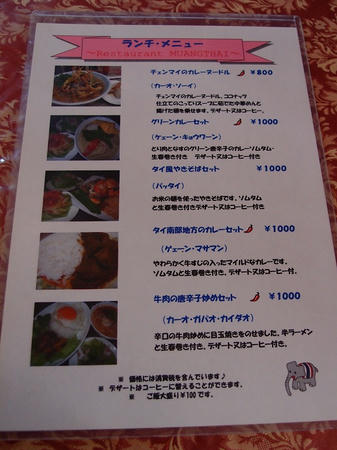 ランチ・メニュー
～Restaurant MUANGTHAI～
チェンマイのカレーヌードル ￥800
(カーオ・ソーイ)
チェンマイのカレーヌードル、ココナッツ
仕立てのこってりスープに茹でた中華めんと
揚げた麺を乗せます。デザート又はコーヒー。
グリーンカレーセット ￥1000
(ゲェーン・キョウワーン)
とり肉となすのグリーン唐辛子のカレーソムタム・
生春巻き付き デザート又はコーヒー付き
タイ風やきそばセット ￥1000
(パッタイ)
お米の麺を使ったやきそばです。ソムタム
と生春巻き付きデザート又はコーヒー付き
タイ南部地方のカレーセット ￥1000
(ゲェーン・マサマン)
やわらかく牛すじの入ったマイルドなカレーです。
ソムタムと生春巻き付き、デザート又はコーヒー付。
牛肉の唐辛子炒めセット ￥1000
(カーオ・ガパオ・カイダオ)
辛口の牛肉炒めに目玉焼きをのせました。半ラーメン
と生春巻き付き。デザート又はコーヒー付き。
※ 価格には消費税を含んでいます♪
※ デザートはコーヒーに替えることができます。
※ ご飯大盛り￥100です。